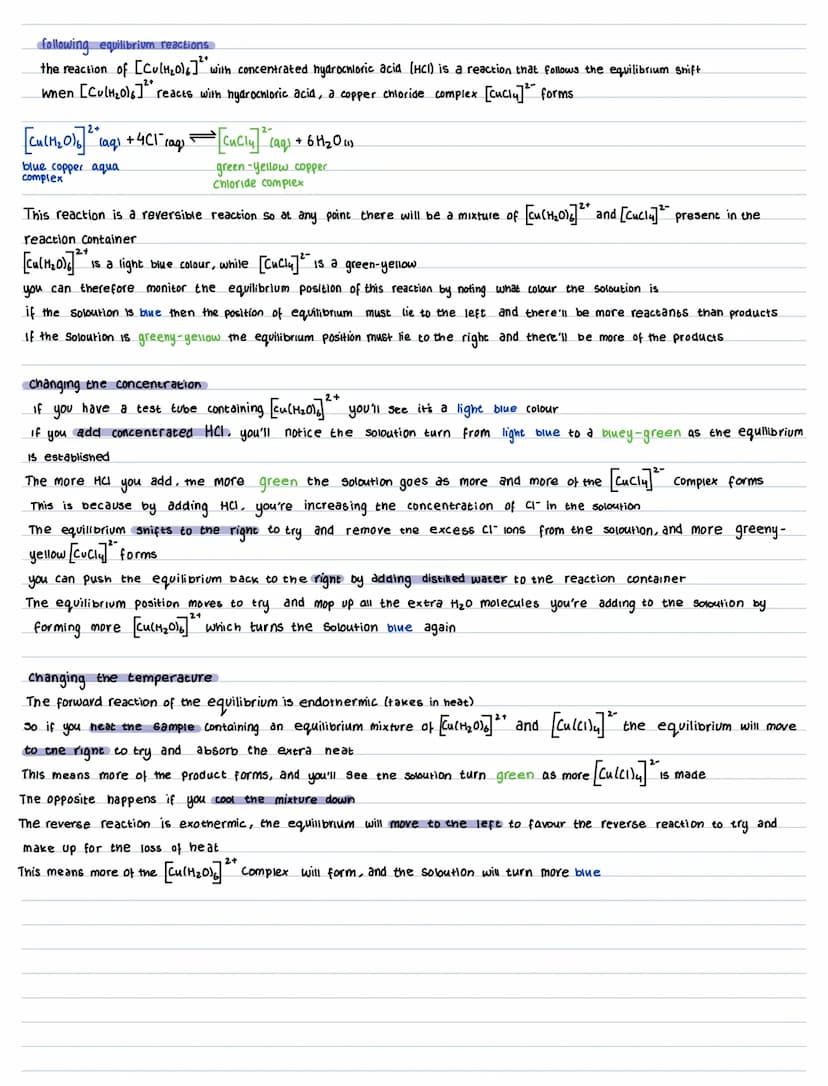 following equilibrium reactions
the reaction of [Cu(H₂O)₆]²⁺ with concentrated hydrochloric acid (HCl) is a reaction that follows the equilibrium shift
when [Cu(H₂O)₆]²⁺ reacts with hydrochloric acid, a copper chloride complex [CuCl₄]²⁻ forms
[Cu(H₂O)₆]²⁺(aq) + 4Cl⁻(aq) ⇌ [CuCl₄]²⁻(aq) + 6H₂O(l)
blue copper aqua complex
green-yellow copper chloride complex
This reaction is a reversible reaction so at any point there will be a mixture of [Cu(H₂O)₆]²⁺ and [CuCl₄]²⁻ present in the
reaction container
[Cu(H₂O)₆]²⁺ is a light blue colour, while [CuCl₄]²⁻ is a green-yellow
you can therefore monitor the equilibrium position of this reaction by noting what colour the soloution is
if the soloution is blue then the position of equilibrium must lie to the left and there'll be more reactants than products
If the soloution is greeny-yellow the equilibrium position must lie to the right and there'll be more of the products
changing the concentration
If you have a test tube containing [Cu(H₂O)₆]²⁺ you'll see it's a light blue colour
if you add concentrated HCl, you'll notice the soloution turn from light blue to a bluey-green as the equilibrium
is established
The more HCl you add, the more green the soloution goes as more and more of the [CuCl₄]²⁻ complex forms
This is because by adding HCl, you're increasing the concentration of Cl⁻ in the soloution
The equilibrium shifts to the right to try and remove the excess Cl⁻ ions from the soloution, and more greeny-
yellow [CuCl₄]²⁻ forms
you can push the equilibrium back to the right by adding distilled water to the reaction container
The equilibrium position moves to try and mop up all the extra H₂O molecules you're adding to the soloution by
forming more [Cu(H₂O)₆]²⁺ which turns the soloution blue again
changing the temperature
The forward reaction of the equilibrium is endothermic (takes in heat)
so if you heat the sample containing an equilibrium mixture of [Cu(H₂O)₆]²⁺ and [Cu(Cl)₄]²⁻ the equilibrium will move
to the right to try and absorb the extra heat
This means more of the product forms, and you'll see the soloution turn green as more [Cu(Cl)₄]²⁻ is made
The opposite happens if you cool the mixture down
The reverse reaction is exothermic, the equilibrium will move to the left to favour the reverse reaction to try and
make up for the loss of heat
This means more of the [Cu(H₂O)₆]²⁺ complex will form, and the soloution will turn more blue